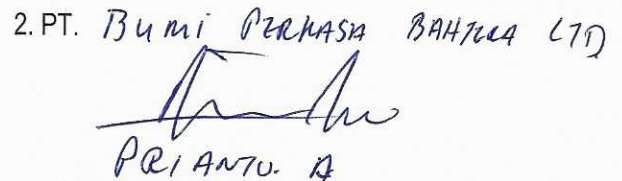 2. PT. BUMI PERKASA BAHTERA LTD
PRIANTO. A